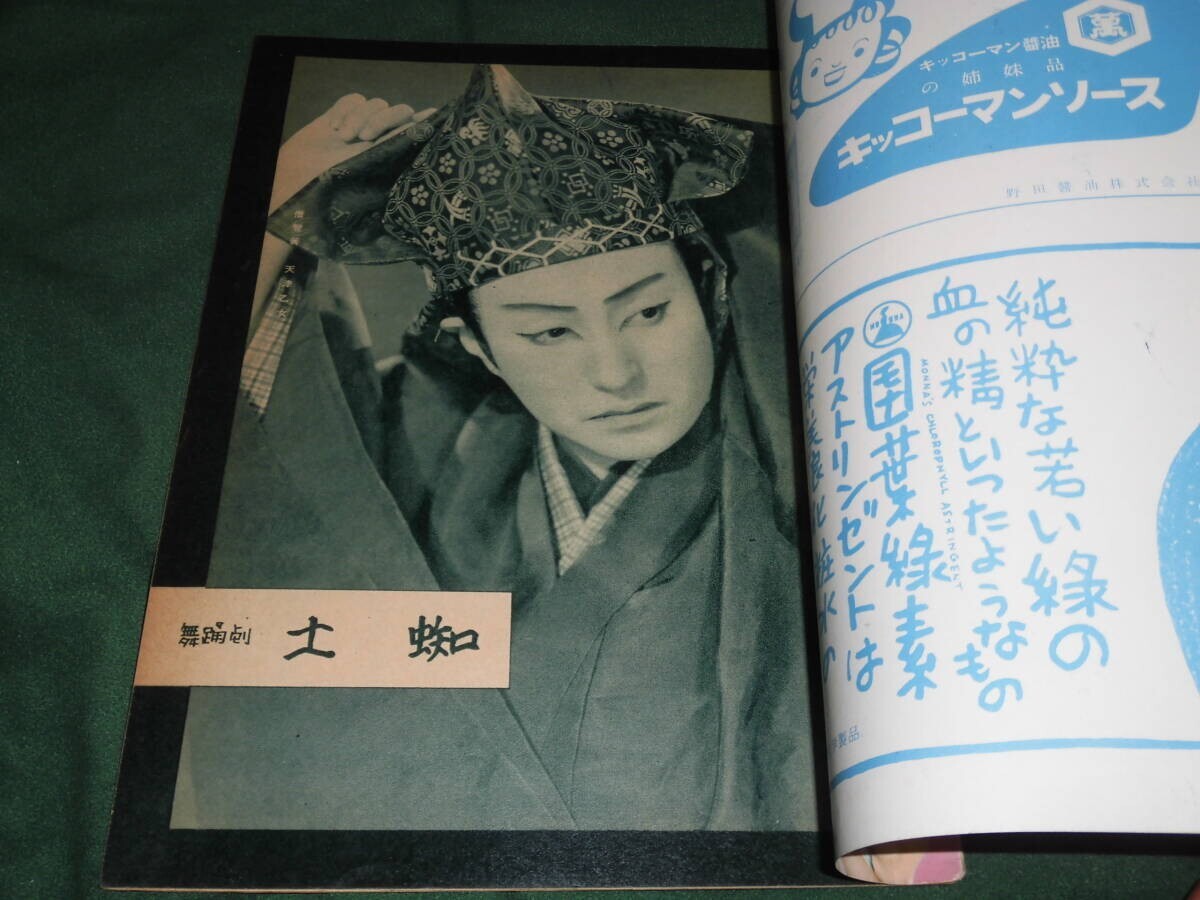 天津乙女
舞踊劇 土蜘
萬
キッコーマン醬油
の姉妹品
キッコーマンソース
野田醬油株式会社
純粋な若い緑の
血の精といったようなもの
圀葉緑素
MONNA'S CHLOROPHYLL ASTRINGENT
アストリンゼントは
製品